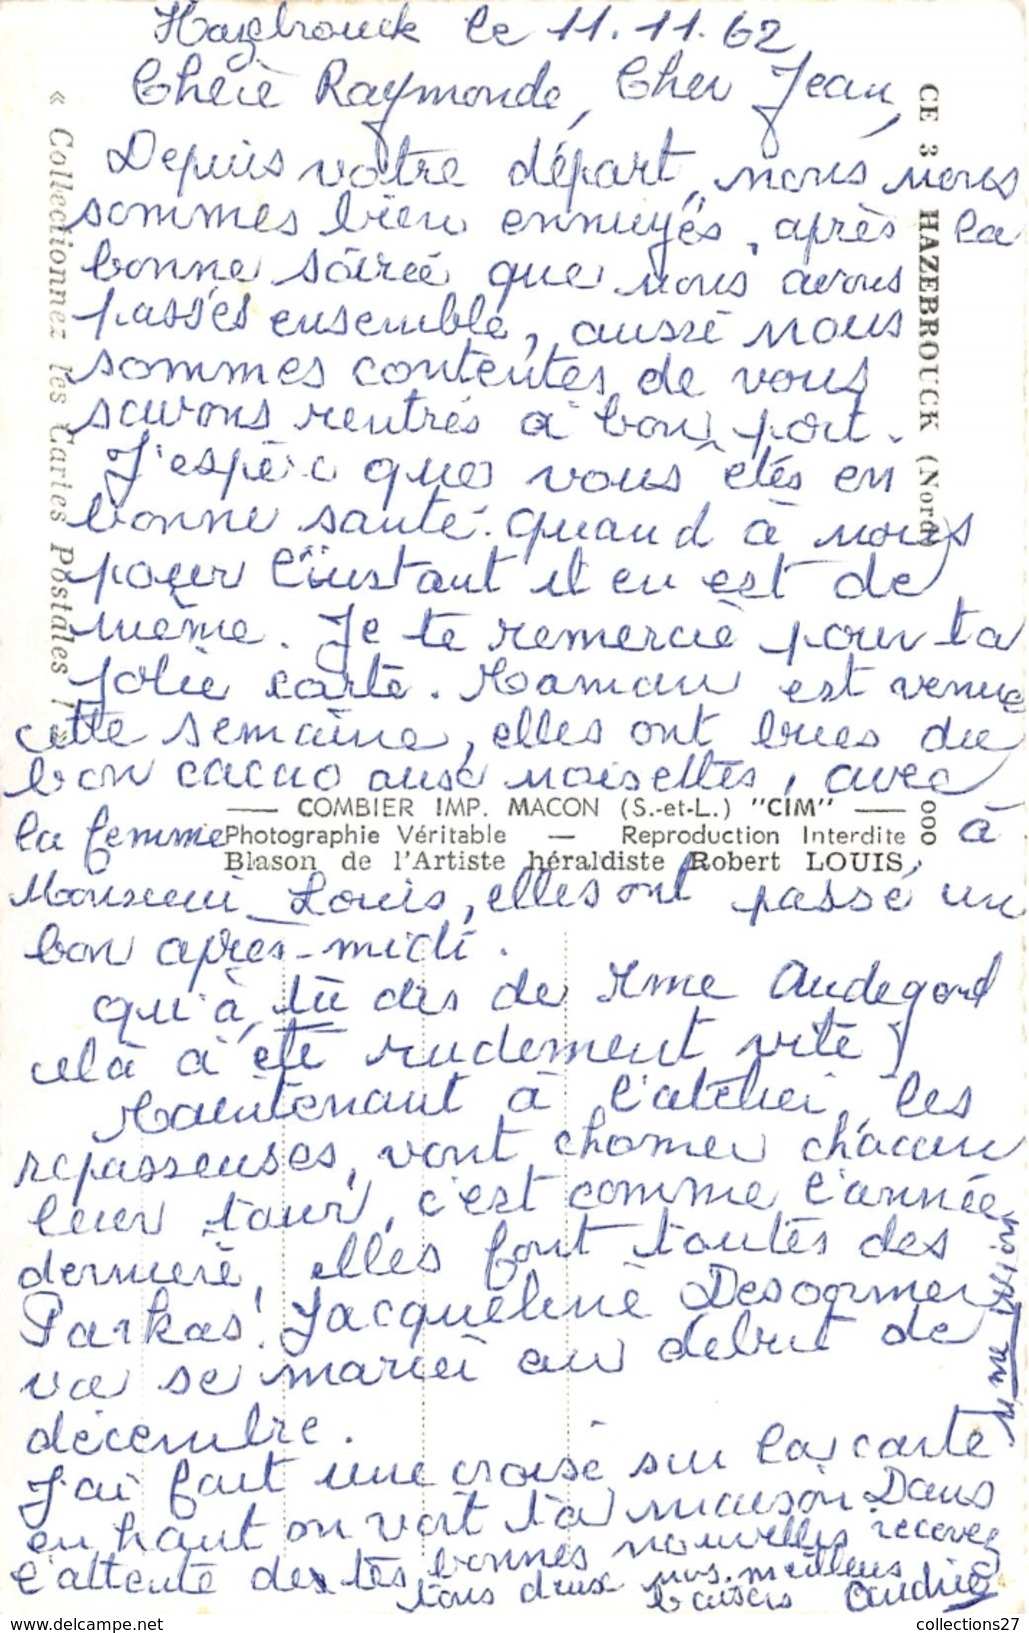 Hazebrouck le 11.11.62
Chère Raymonde, Cher Jean,
Depuis votre départ, nous nous
sommes bien ennuyés, après la
bonne soirée que nous avons
passés ensemble, aussi nous
sommes contentes de vous
savons rentrés à bon port.
J'espère que vous êtes en
bonne santé. Quand à nous
pour l'instant il en est de
même. Je te remercie pour ta
jolie carte. Maman est venue
cette semaine, elles ont bues du
bon cacao aux noisettes, avec
la femme à
Monsieur Louis, elles ont passé un
bon après-midi.
qu'à tu dis de Mme Audegond
celà à été rudement vite!
Maintenant à l'atelier, les
repasseuses, vont chomer chacun
leur tour, c'est comme l'année
dernière, elles font toutes des
Parkas! Jacqueline Desogmer
va se marier au début de
décembre.
J'ai fait une croise sur la carte
en haut on voit ta maison Dans
l'attente des tes bonnes nouvelles recevez
tous deux nos meilleurs
baisers Audrie
Mme
CE 3 HAZEBROUCK (Nord)
« Collectionnez les Cartes Postales ! »
COMBIER IMP. MACON (S.-et-L.) "CIM"
Photographie Véritable — Reproduction Interdite
Blason de l'Artiste héraldiste Robert LOUIS
000
collections27